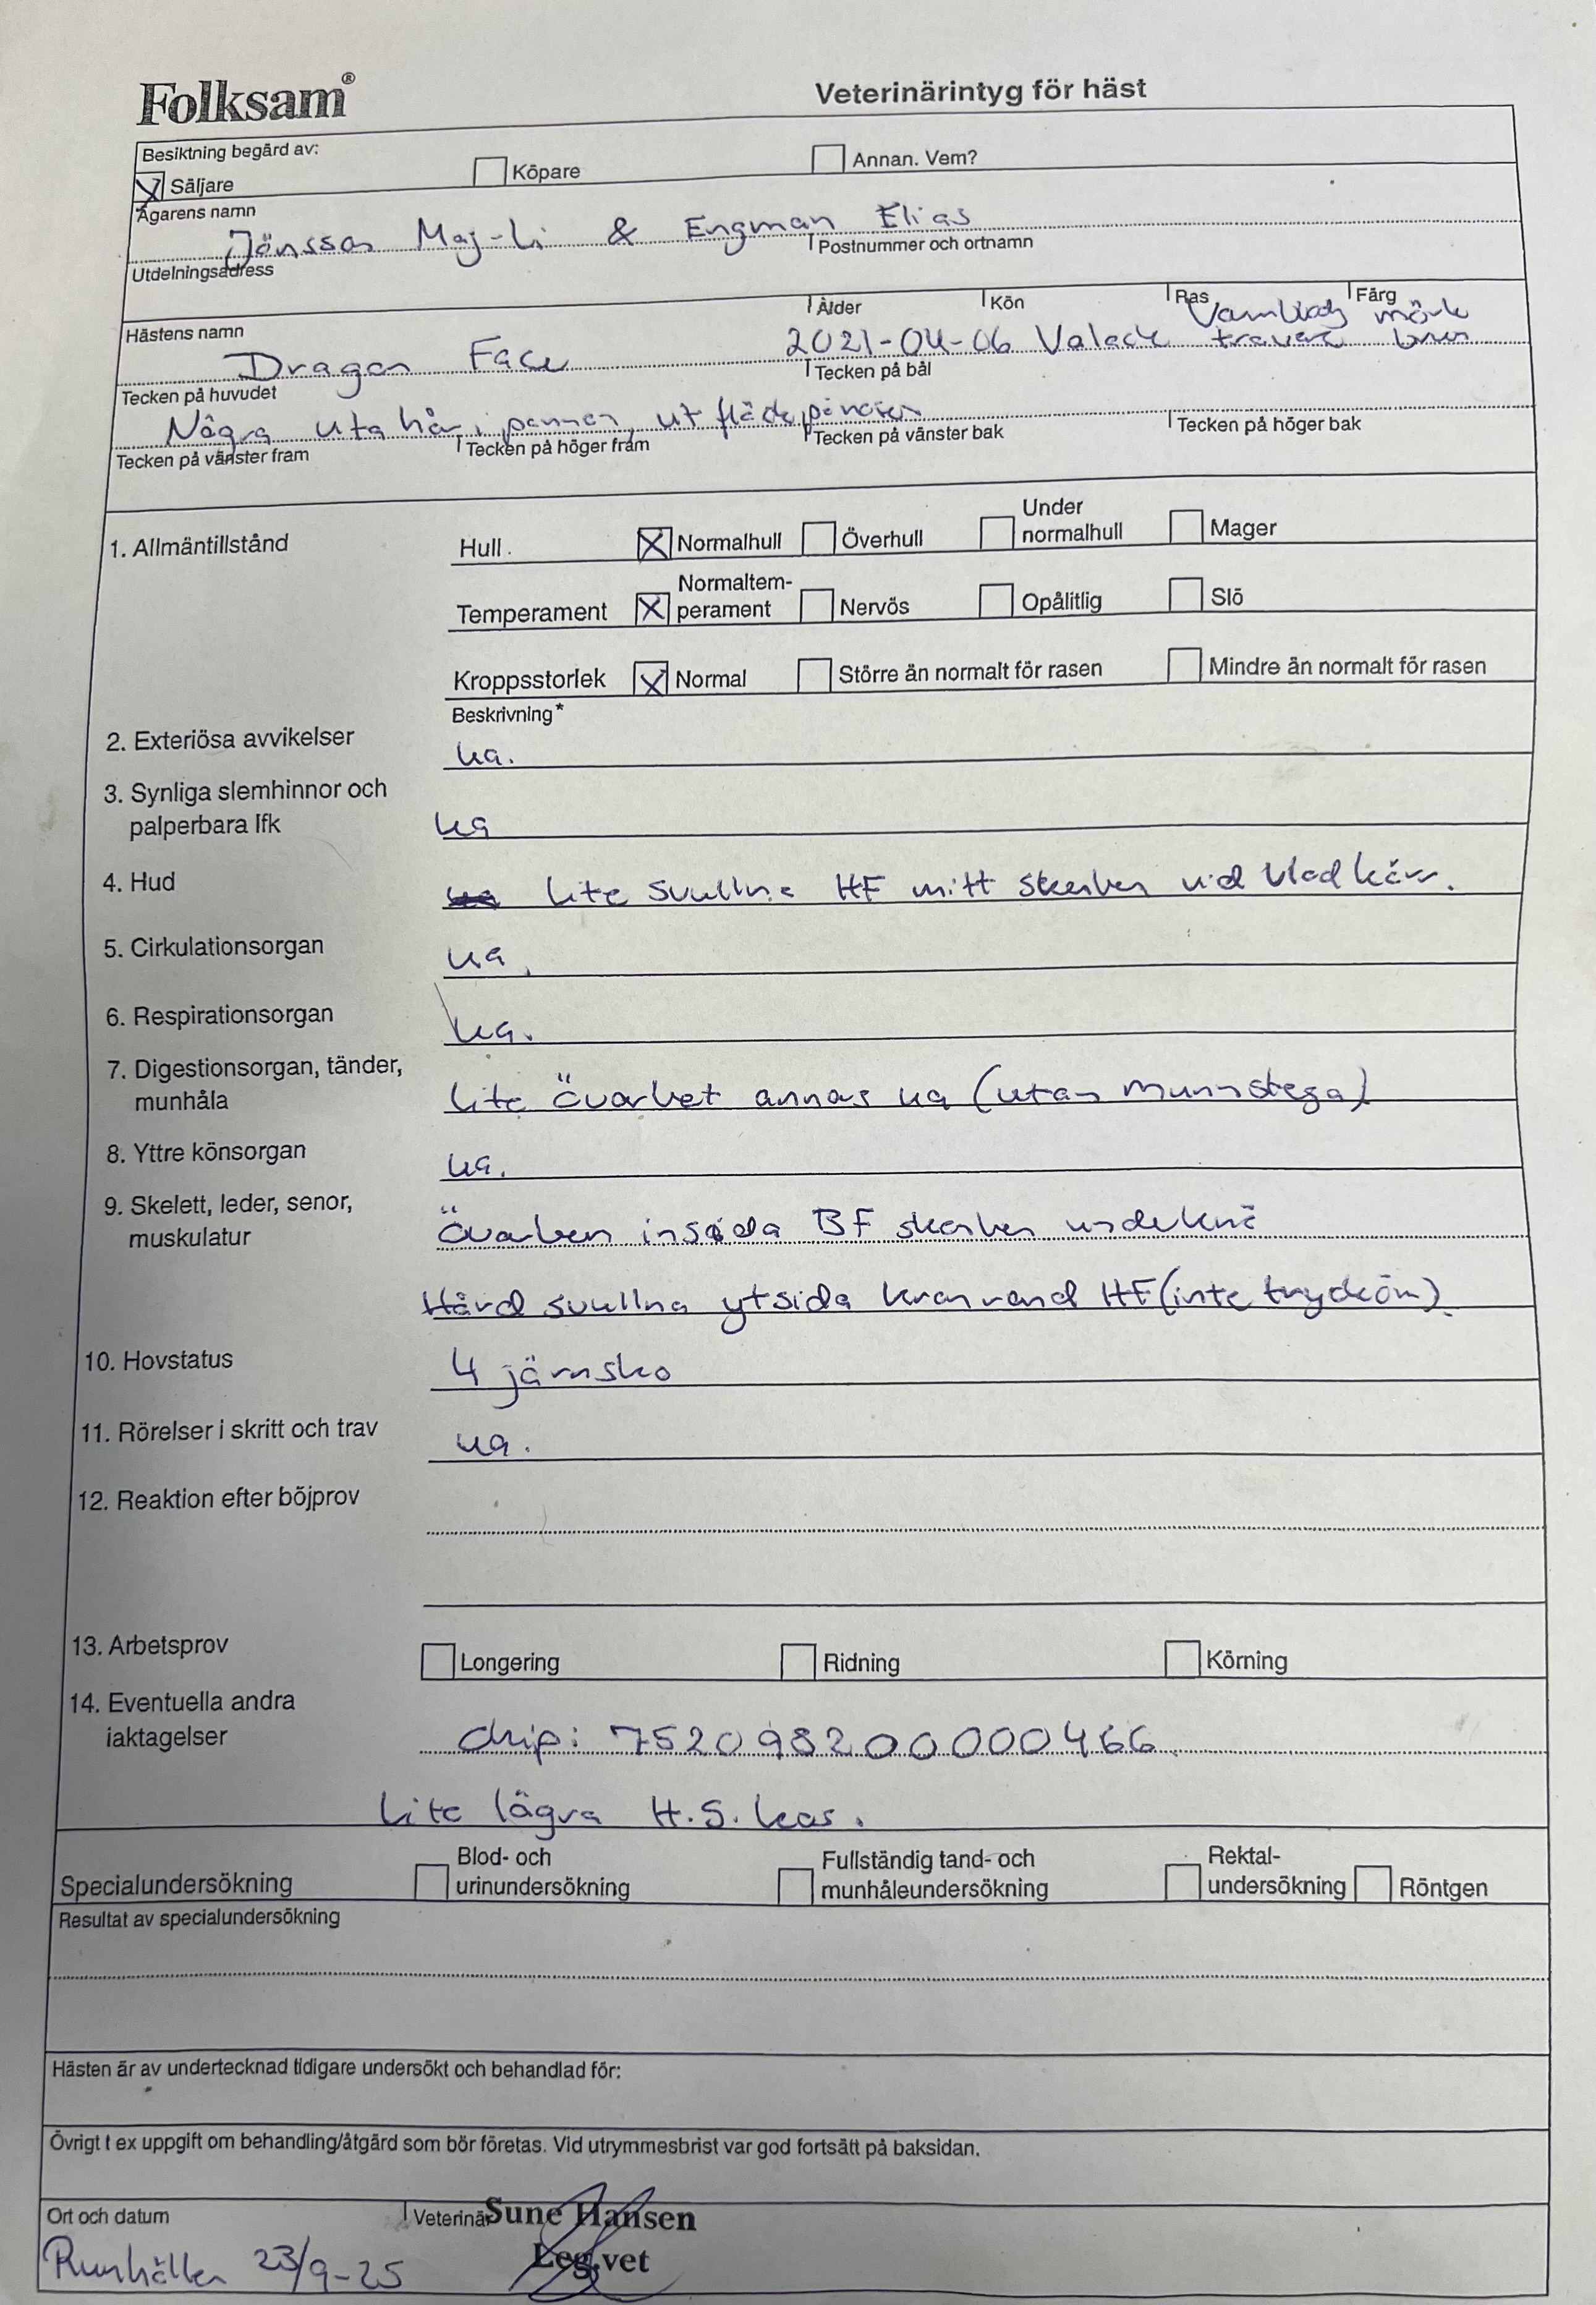 Folksam®
Veterinärintyg för häst
Besiktning begärd av:
Säljare Köpare Annan. Vem?
Ägarens namn
Jönsson Maj-Li & Engman Elias
Utdelningsadress Postnummer och ortnamn
Hästens namn Ålder Kön Ras Färg
Dragon Face 2021-04-06 Valack Varmblod travare mörk brun
Tecken på huvudet Tecken på bål
Några vita hår i pannan, ut
Tecken på vänster fram Tecken på höger fram Tecken på vänster bak Tecken på höger bak
1. Allmäntillstånd Hull. Normalhull Överhull Under normalhull Mager
Temperament Normaltem-perament Nervös Opålitlig Slö
Kroppsstorlek Normal Större än normalt för rasen Mindre än normalt för rasen
Beskrivning*
2. Exteriösa avvikelser ua.
3. Synliga slemhinnor och
palperbara lfk ua
4. Hud ua lite svullna HF mitt skenben vid bladkärr.
5. Cirkulationsorgan ua.
6. Respirationsorgan ua.
7. Digestionsorgan, tänder,
munhåla lite överbet annars ua (utan munstega)
8. Yttre könsorgan ua.
9. Skelett, leder, senor,
muskulatur Överben insida BF skenben underknä
Hård svullna ytsida kronrand HF (inte tryköm).
10. Hovstatus 4 järnsko
11. Rörelser i skritt och trav ua.
12. Reaktion efter böjprov
13. Arbetsprov Longering Ridning Körning
14. Eventuella andra
iaktagelser chip: 752098200000466
Lite lägra H.S. kas.
Specialundersökning Blod- och urinundersökning Fullständig tand- och munhåleundersökning Rektal-undersökning Röntgen
Resultat av specialundersökning
Hästen är av undertecknad tidigare undersökt och behandlad för:
Övrigt t ex uppgift om behandling/åtgärd som bör företas. Vid utrymmesbrist var god fortsätt på baksidan.
Ort och datum Veterinär Sune Hansen
Runhällen 23/9-25 Leg.vet